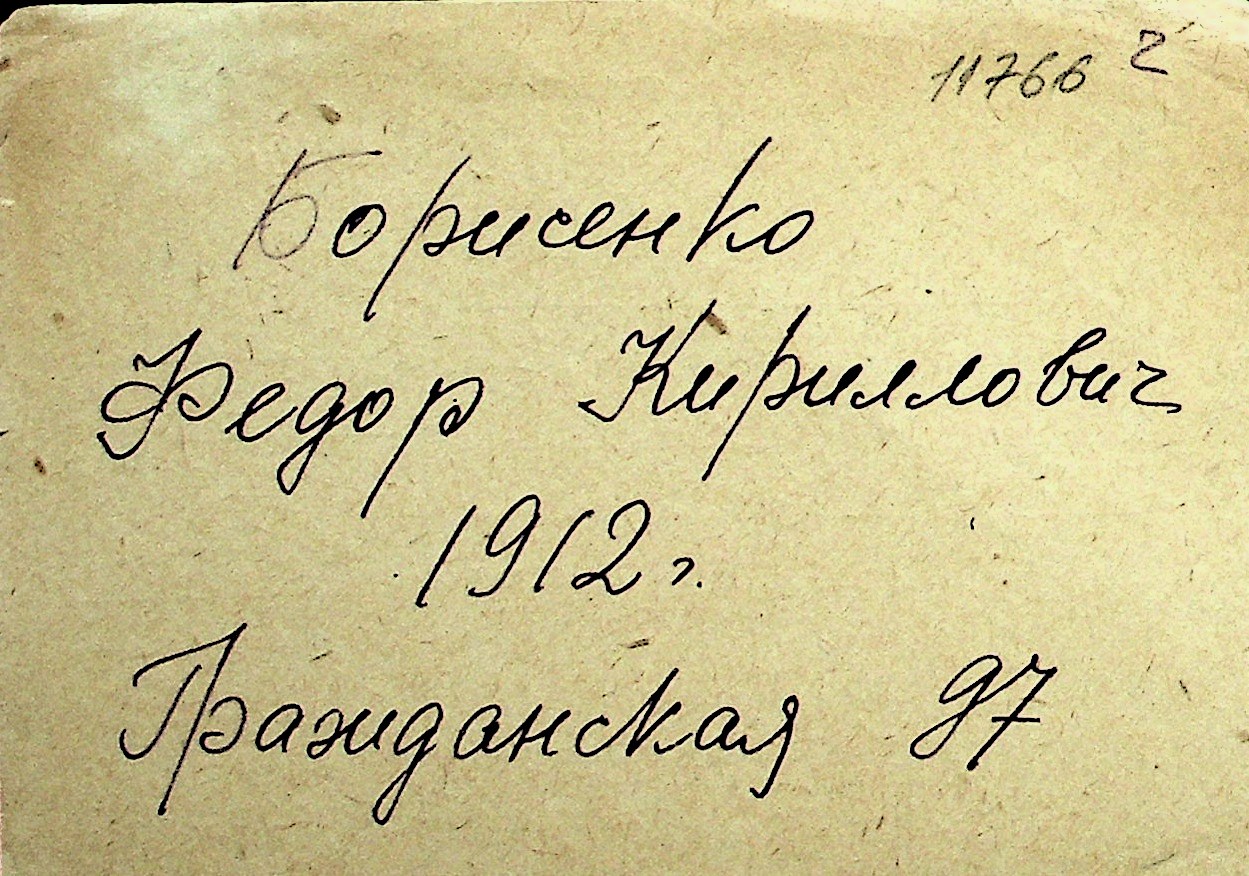 11766 ч
Борисенко
Федор Кириллович
1912 г.
Гражданская 97